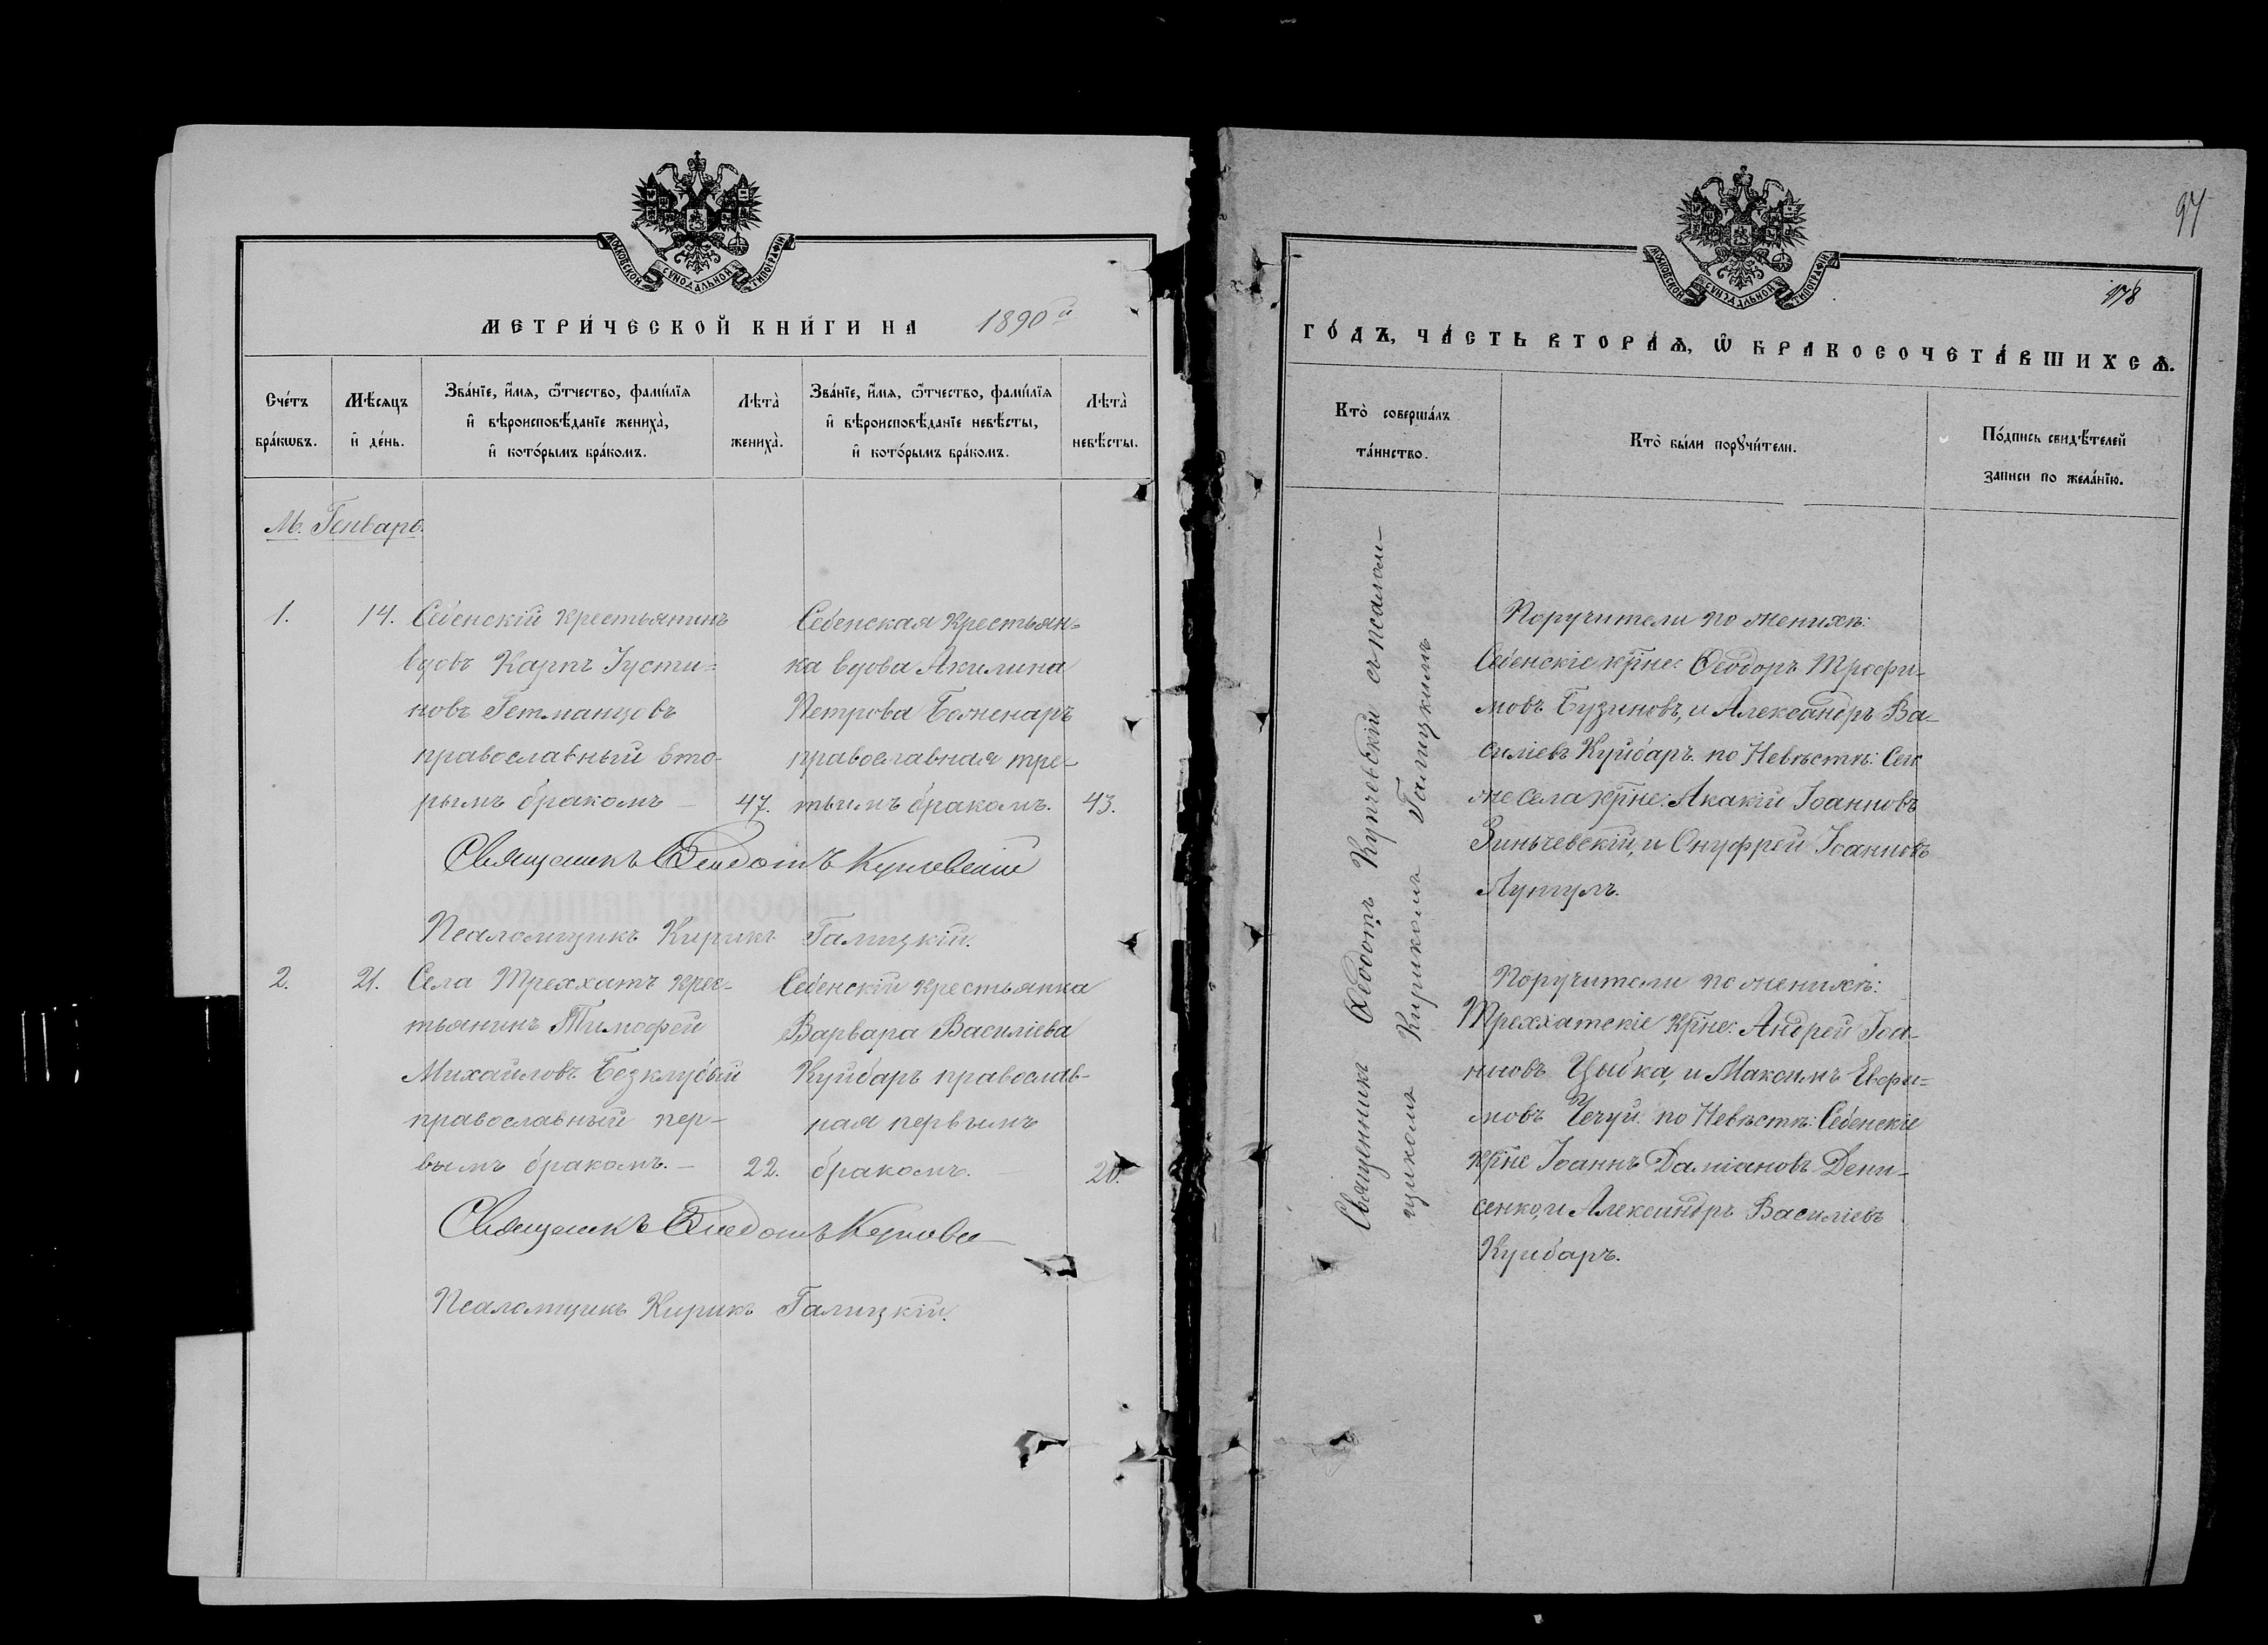 МОСКОВСКОЙ СУНОДАЛЬНОЙ ТИПОГРАФІИ
МЕТРИ́ЧЕСКОЙ КНИ́ГИ НА 1890й
Сче́тъ
бра́кѡвъ.
Мѣ́сяцъ
и҆ де́нь.
Зва́нїе, и҆́мѧ, ѻ҆́тчество, фами́лїѧ
и҆ вѣроисповѣ́данїе жениха̀,
и҆ кото́рымъ бра́комъ.
Лѣ́та̀
жениха̀.
Зва́нїе, и҆́мѧ, ѻ҆́тчество, фами́лїѧ
и҆ вѣроисповѣ́данїе невѣ́сты,
и҆ кото́рымъ бра́комъ.
Лѣ́та̀
невѣ́сты.
М. Генварь.
1.
14.
Себенскій крестьянинъ
вдовъ Карпъ Іусти=
новъ Гетманцовъ
православный вто-
рымъ бракомъ —
47.
Себенская крестьян=
ка вдова Акилина
Петрова Боженаръ
православная тре-
тьимъ бракомъ.
43.
Священникъ Ѳеодотъ Купчевскій
Псаломщикъ Кирикъ Галицкій.
2.
21.
Села Треххатъ крес-
тьянинъ Тимофей
Михайловъ Безклубый
православный пер-
вымъ бракомъ. —
22.
Себенскій крестьянка
Варвара Василіева
Куйбаръ православ-
ная первымъ
бракомъ. —
20.
Священникъ Ѳеодотъ
Псаломщикъ Кирикъ Галицкій.
97
978
МОСКОВСКОЙ СУНОДАЛЬНОЙ ТИПОГРАФІИ
ГО́ДЪ, ЧА́СТЬ ВТОРА́Ѧ, Ѡ҆ БРАКОСОЧЕТА́ВШИХСѦ.
Кто̀ соверша́лъ
та́инство.
Кто̀ бы́ли порꙋчи́тели.
По́дпись свидѣ́телей
записи по жела́нїю.
Священникъ Ѳеодотъ Купчевскій съ псалом-
щикомъ Кирикомъ Галицкимъ
Поручители по женихѣ:
Себенскіе крне: Ѳеодоръ Трофи-
мовъ Бузиновъ, и Александръ Ва-
силіевъ Куйбаръ. по Невѣстѣ: Сег
же села крне: Акакій Іоанновъ
Зиньчевскій, и Онуфрей Іоанновъ
Лупулъ.
Поручители по женихѣ:
Треххатскіе крне: Андрей Іоа-
нновъ Цыбка, и Максимъ Евфи=
мовъ Чечуй. по Невѣстѣ: Себенскіе
крне Іоаннъ Даміановъ Дени-
сенко, и Александръ Василіевъ
Куйбаръ.